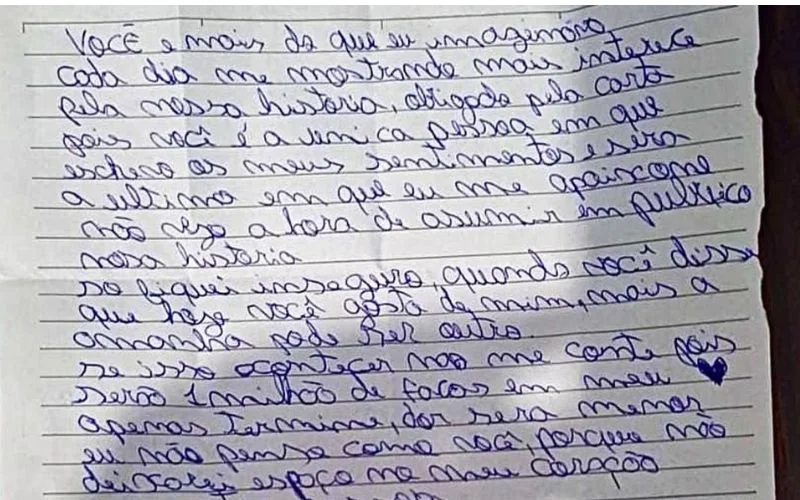 VOCÊ e mais do que eu imaginava
cada dia me mostrando mais interece
pela nossa historia, obrigada pela carta
pois você é a unica pessoa em que
escrevo os meus sentimentos e sera
a ultima em que eu me apaixone
não vejo a hora de asumir em publico
nosa historia
so fiquei insegura, quando você disse
que hoje você gosta de mim, mais a
amanha pode ser outro
se isso acontecer nao me conte pois
serão 1 milhão de facas em meu
apenas termine, dor sera menor
eu não penso como você, porque não
deixarei espaço no meu coração